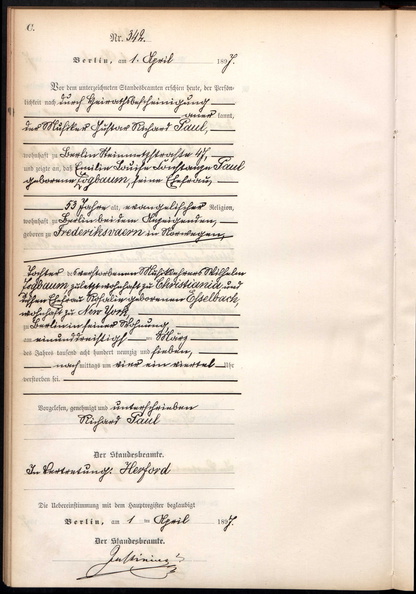 C.
Nr. 342.
Berlin, am 1. April 1897.
Vor dem unterzeichneten Standesbeamten erschien heute, der Persön-
lichkeit nach durch Heirathsbescheinigung
aner kannt,
der Musiker Gustav Richard Paul,
wohnhaft zu Berlin Steinmetzstraße 47,
und zeigte an, daß Emilie Louise Constanze Paul
geborene Logbaum, seine Ehefrau,
53 Jahre alt, evangelischer Religion,
wohnhaft zu Berlin bei dem Anzeigenden,
geboren zu Frederiksvaern in Norwegen,
Tochter des verstorbenen Musiklehrers Wilhelm
Logbaum zuletzt wohnhaft zu Christiania, und
dessen Ehefrau Rosalie geborenen Esselbach,
wohnhaft zu New York,
zu Berlin in seiner Wohnung
am einunddreißigsten März
des Jahres tausend acht hundert neunzig und sieben,
nach mittags um vier ein viertel Uhr
verstorben sei.
Vorgelesen, genehmigt und unterschrieben
Richard Paul
Der Standesbeamte.
In Vertretung: Herford
Die Uebereinstimmung mit dem Hauptregister beglaubigt
Berlin, am 1 ten April 1897.
Der Standesbeamte.